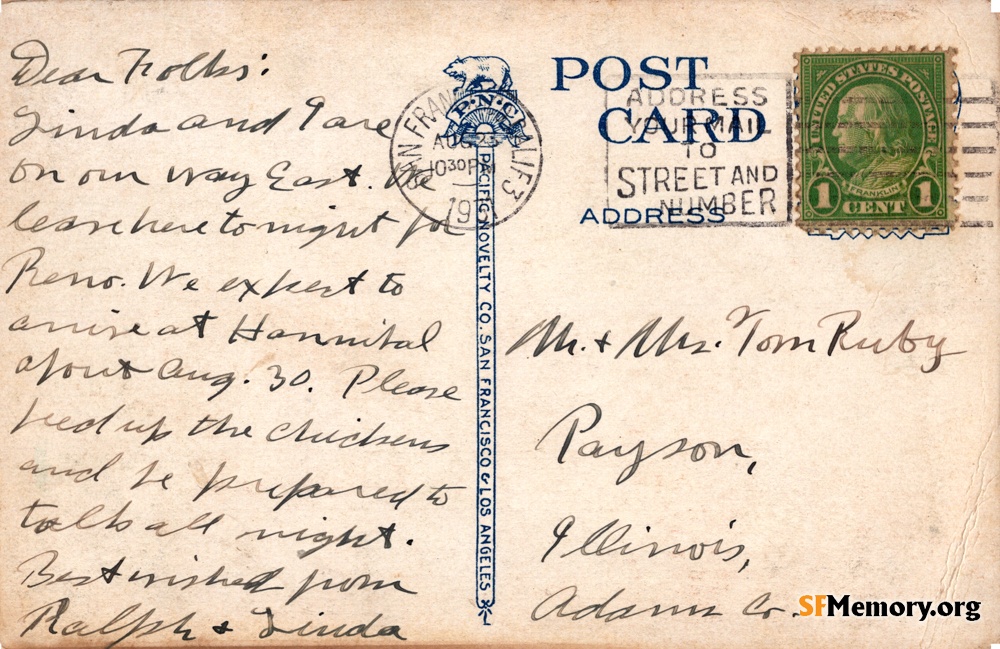 Dear Folks:
Linda and I are
on our way East. We
leave here to night for
Reno. We expect to
arrive at Hannibal
about Aug. 30. Please
feed up the chickens
and be prepared to
talk all night.
Best wishes from
Ralph & Linda
P.N.C.
PACIFIC NOVELTY CO. SAN FRANCISCO & LOS ANGELES
SAN FRAN CALIF. 3
AUG
10 30 PM
19
POST
CARD
ADDRESS
ADDRESS
YOUR MAIL
TO
STREET AND
NUMBER
UNITED STATES POSTAGE
FRANKLIN
1 CENT 1
Mr. & Mrs. Tom Ruby
Payson,
Illinois,
Adams Co.
SFMemory.org